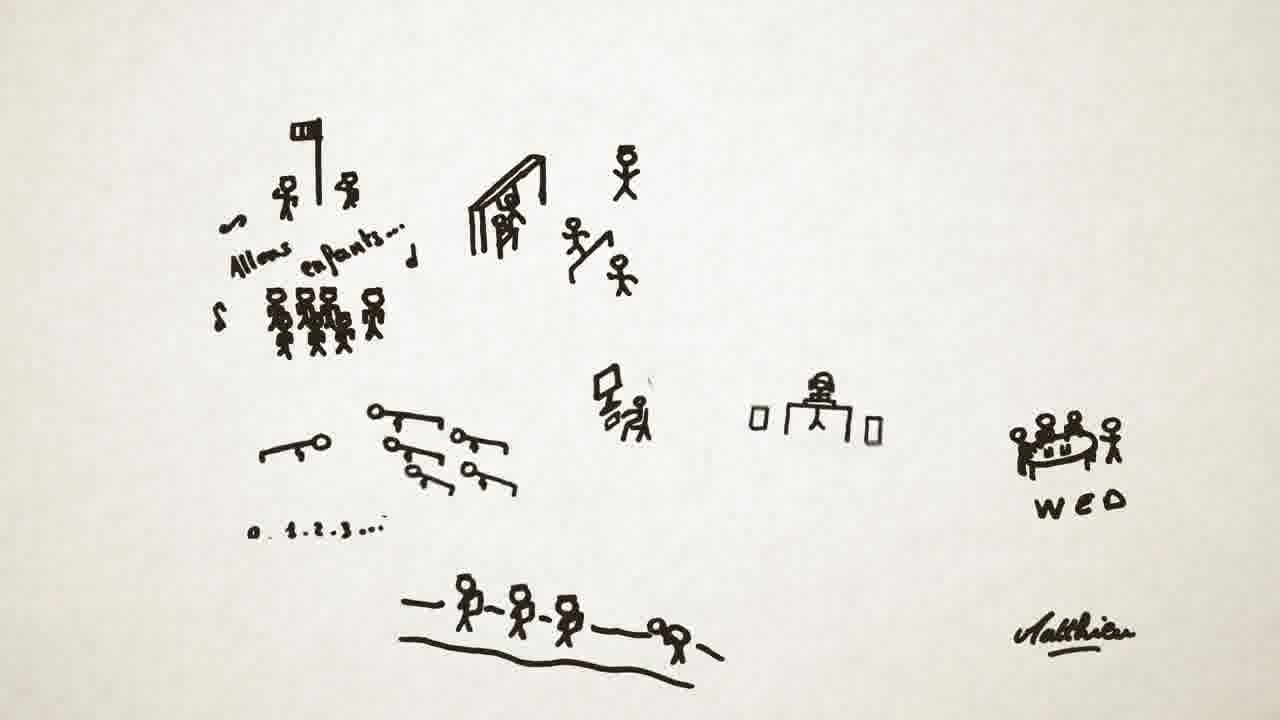 Allons enfants...
0.1.2.3...
WED
Matthieu